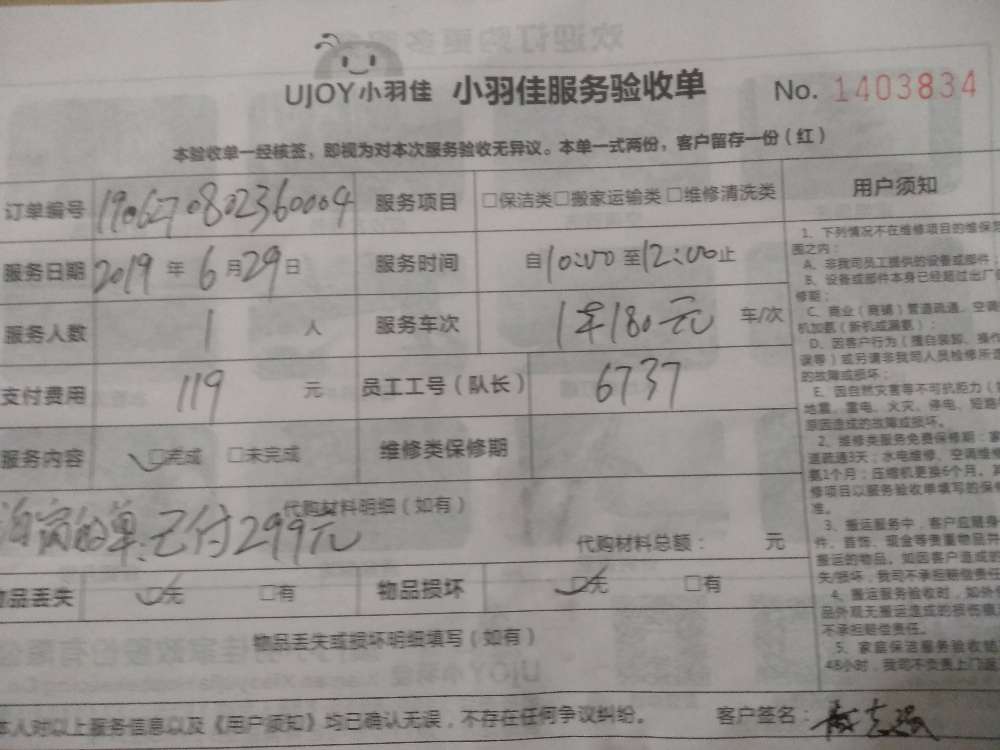 UJOY小羽佳 小羽佳服务验收单 No. 1403834
本验收单一经核签，即视为对本次服务验收无异议。本单一式两份，客户留存一份（红）
订单编号 1906270802360004 服务项目 □保洁类□搬家运输类 □维修清洗类
服务日期 2019 年 6 月 29 日 服务时间 自 10:00 至 12:00 止
服务人数 1 人 服务车次 1车180元 车/次
支付费用 119 元 员工工号（队长） 6737
服务内容 □完成 □未完成 维修类保修期
代购材料明细（如有）
的单.已付299元
代购材料总额： 元
物品丢失 □无 □有 物品损坏 □无 □有
物品丢失或损坏明细填写（如有）
本人对以上服务信息以及《用户须知》均已确认无误，不存在任何争议纠纷。 客户签名：
用户须知
1、下列情况不在维修项目的维保范
围之内：
A、非我司员工提供的设备或部件；
B、设备或部件本身已经超过出厂
修期；
C、商业（商铺）管道疏通、空调
机加氨（新机或漏氨）；
D、因客户行为（擅自装卸、操作
误等）或另请非我司人员检修所
的故障或损坏；
E、因自然灾害等不可抗距力（
地震、雷电、火灾、停电、短路
原因造成的故障或损坏。
2、维修类服务免费保修期：家
道疏通3天；水电维修、空调维修
氨1个月；压缩机更换6个月。
修项目以服务验收单填写的保修
准。
3、搬运服务中，客户应随身
件、首饰、现金等贵重物品并
搬运的物品。如因客户造成
失/损坏，我司不承担赔偿责任
4、搬运服务验收时，如外
品外观无搬运造成的损伤
不承担赔偿责任。
5、家庭保洁服务验收
48小时，我司不负责上门返